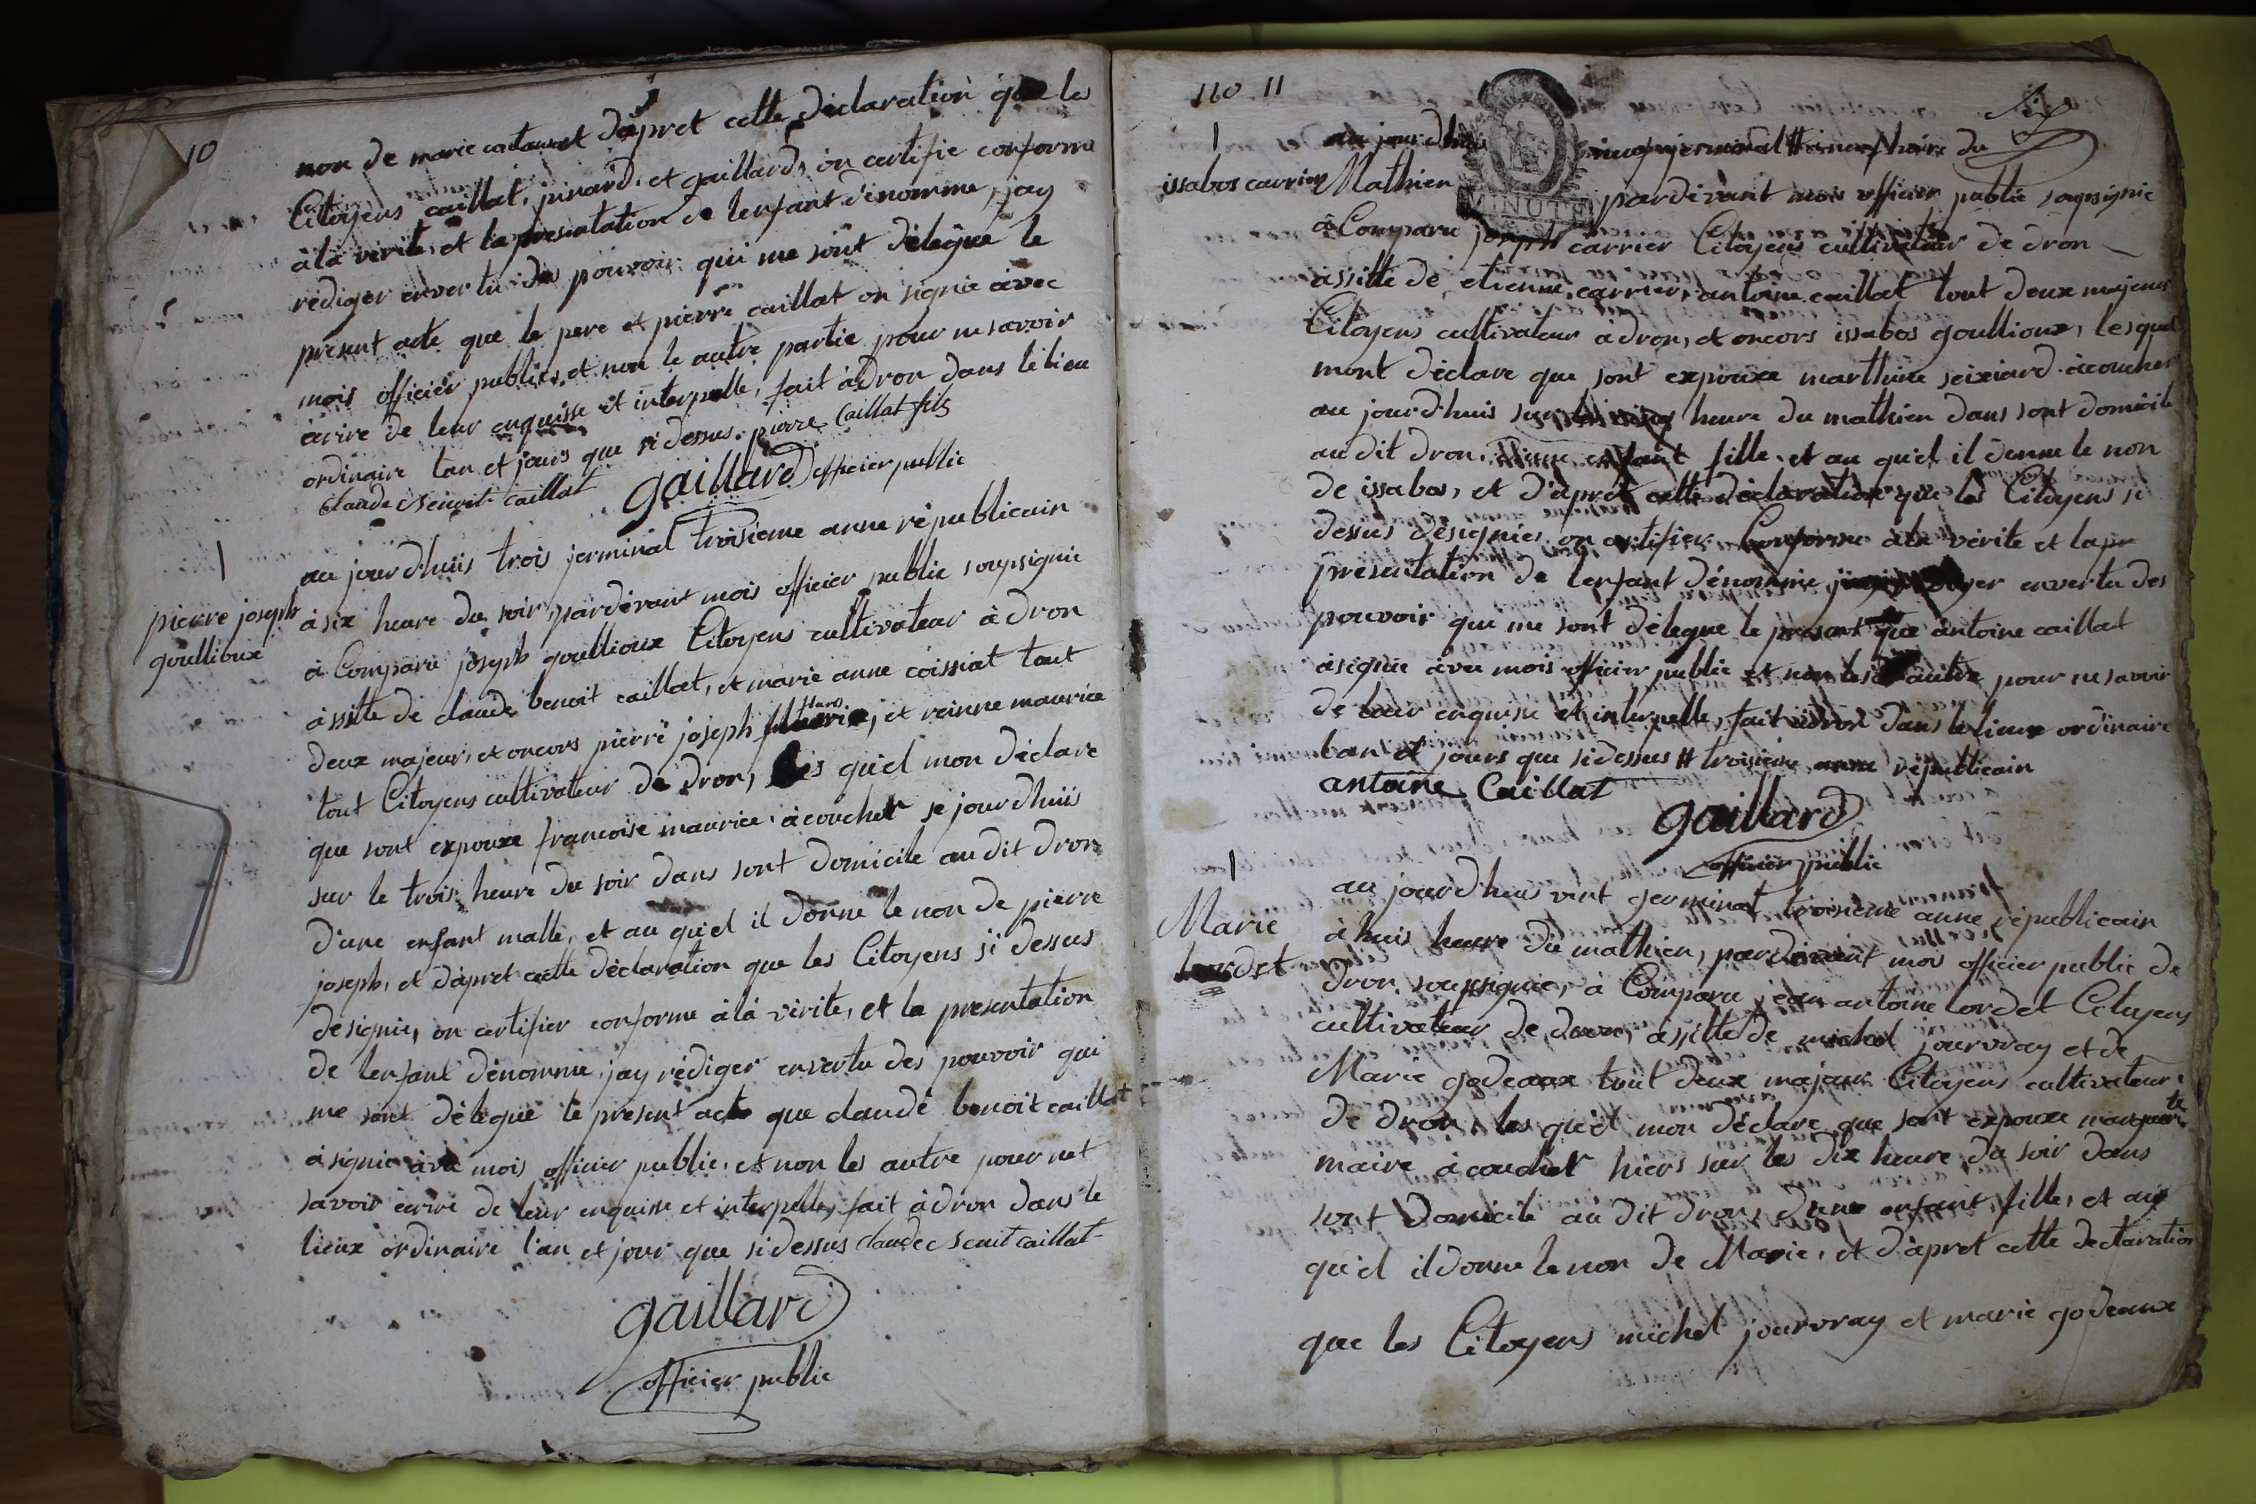 10
non de marie coutausset d'âpret cette déclaration que les
Citoyens caillat, pinard, et gaillard, on certifie conforme
àla verite, et la presentation de lenfant dénomme, jay
rédiger envertu des pouvoir qui me sont délegue le
present acte que le pere et pierre caillat on signie avec
mois officier public, et non le autre partie pour ne savoir
écrire de leur enquisse et interpelle, fait àdron dans le lieu
ordinaire lan et jours que sidessus. pierre Caillat fils
Claude Benoit caillat gaillard officier public
pierre joseph
goullioux
au jourdhuis trois jerminal troisieme anne républicain
à six heure du soir, pardevant mois officier public soupsignie
à Comparu joseph goullioux Citoyens cultivateur à dron
assitte de claude benoit caillat, et marie anne coissiat tout
deux majeur, et oncors pierre joseph et reinne maurice
tout Citoyens cultivateur de dron, qu'el mon déclare
que sont expouxe francoise maurice àcouchet se jourdhuis
sur le trois heure du soir dans sont domicile au dit dron
d'une enfant malle, et au qu'el il donne le non de pierre
joseph, et d'apret cette déclaration que les Citoyens si dessus
designie, on certifier conforme àlà vérite, et la presentation
de lenfant dénomme, jay rédiger envertu des pouvoir qui
me sont délegue le present acte que claude benoit caillat
à signie àvec mois officier public, et non les autre pour net
savoir écrire de leur enquisse et interpelle, fait àdron dans le
lieux ordinaire l'an et jour que sidessus Claude Benoit caillat
gaillard
officier public
11
issabos carrier
au jourdhuis cinq jerminal # heure du
Mathien pardevant mois officier public soupsignie
à Comparu joseph carrier Citoyens cultivateur de dron
assitte de etienne carrier, antoine caillat tout deux majeur
Citoyens cultivateur à dron, et oncors issabos goullioux, lesquel
mont déclare que sont expouxe marthine seixiard àcouchet
au jourd'huis sur heure du mathien dans sont domicile
audit dron, d'une enfant fille, et au qu'el il donne le non
de issabos, et d'apret cette déclaration que les Citoyens si
dessus désignies on certifier Conforme àla vérite et la pr
presentation de lenfant dénomme envertu des
pouvoir que me sont délegue le present que antoine caillat
à signie àvec mois officier public et non les autre pour ne savoir
de leur enquisse et interpelle, fait àdron dans le lieux ordinaire
lan et jours que sidessus # troisieme anne républicain
antoine Caillat
gaillard
officier public
Marie
lordet
au jourdhuis vint germinal troisieme anne républicain
à huis heure du mathien, pardevant moi officier public de
dron soupsignie, à Comparu jean antoine lordet Citoyens
cultivateur de dron, assitte de michel jourvray et de
Marie godeaux tout deux majeur Citoyens cultivateur
de dron, les qu'el mon déclare que sont expouxe marguerite
maire àcouchet hiers sur les dix heure du soir dans
sont domicile au dit dron, d'une enfant fille, et au
qu'el il donne le non de Marie, et d'àpret cette declaration
que les Citoyens michel jourvray et marie godeaux